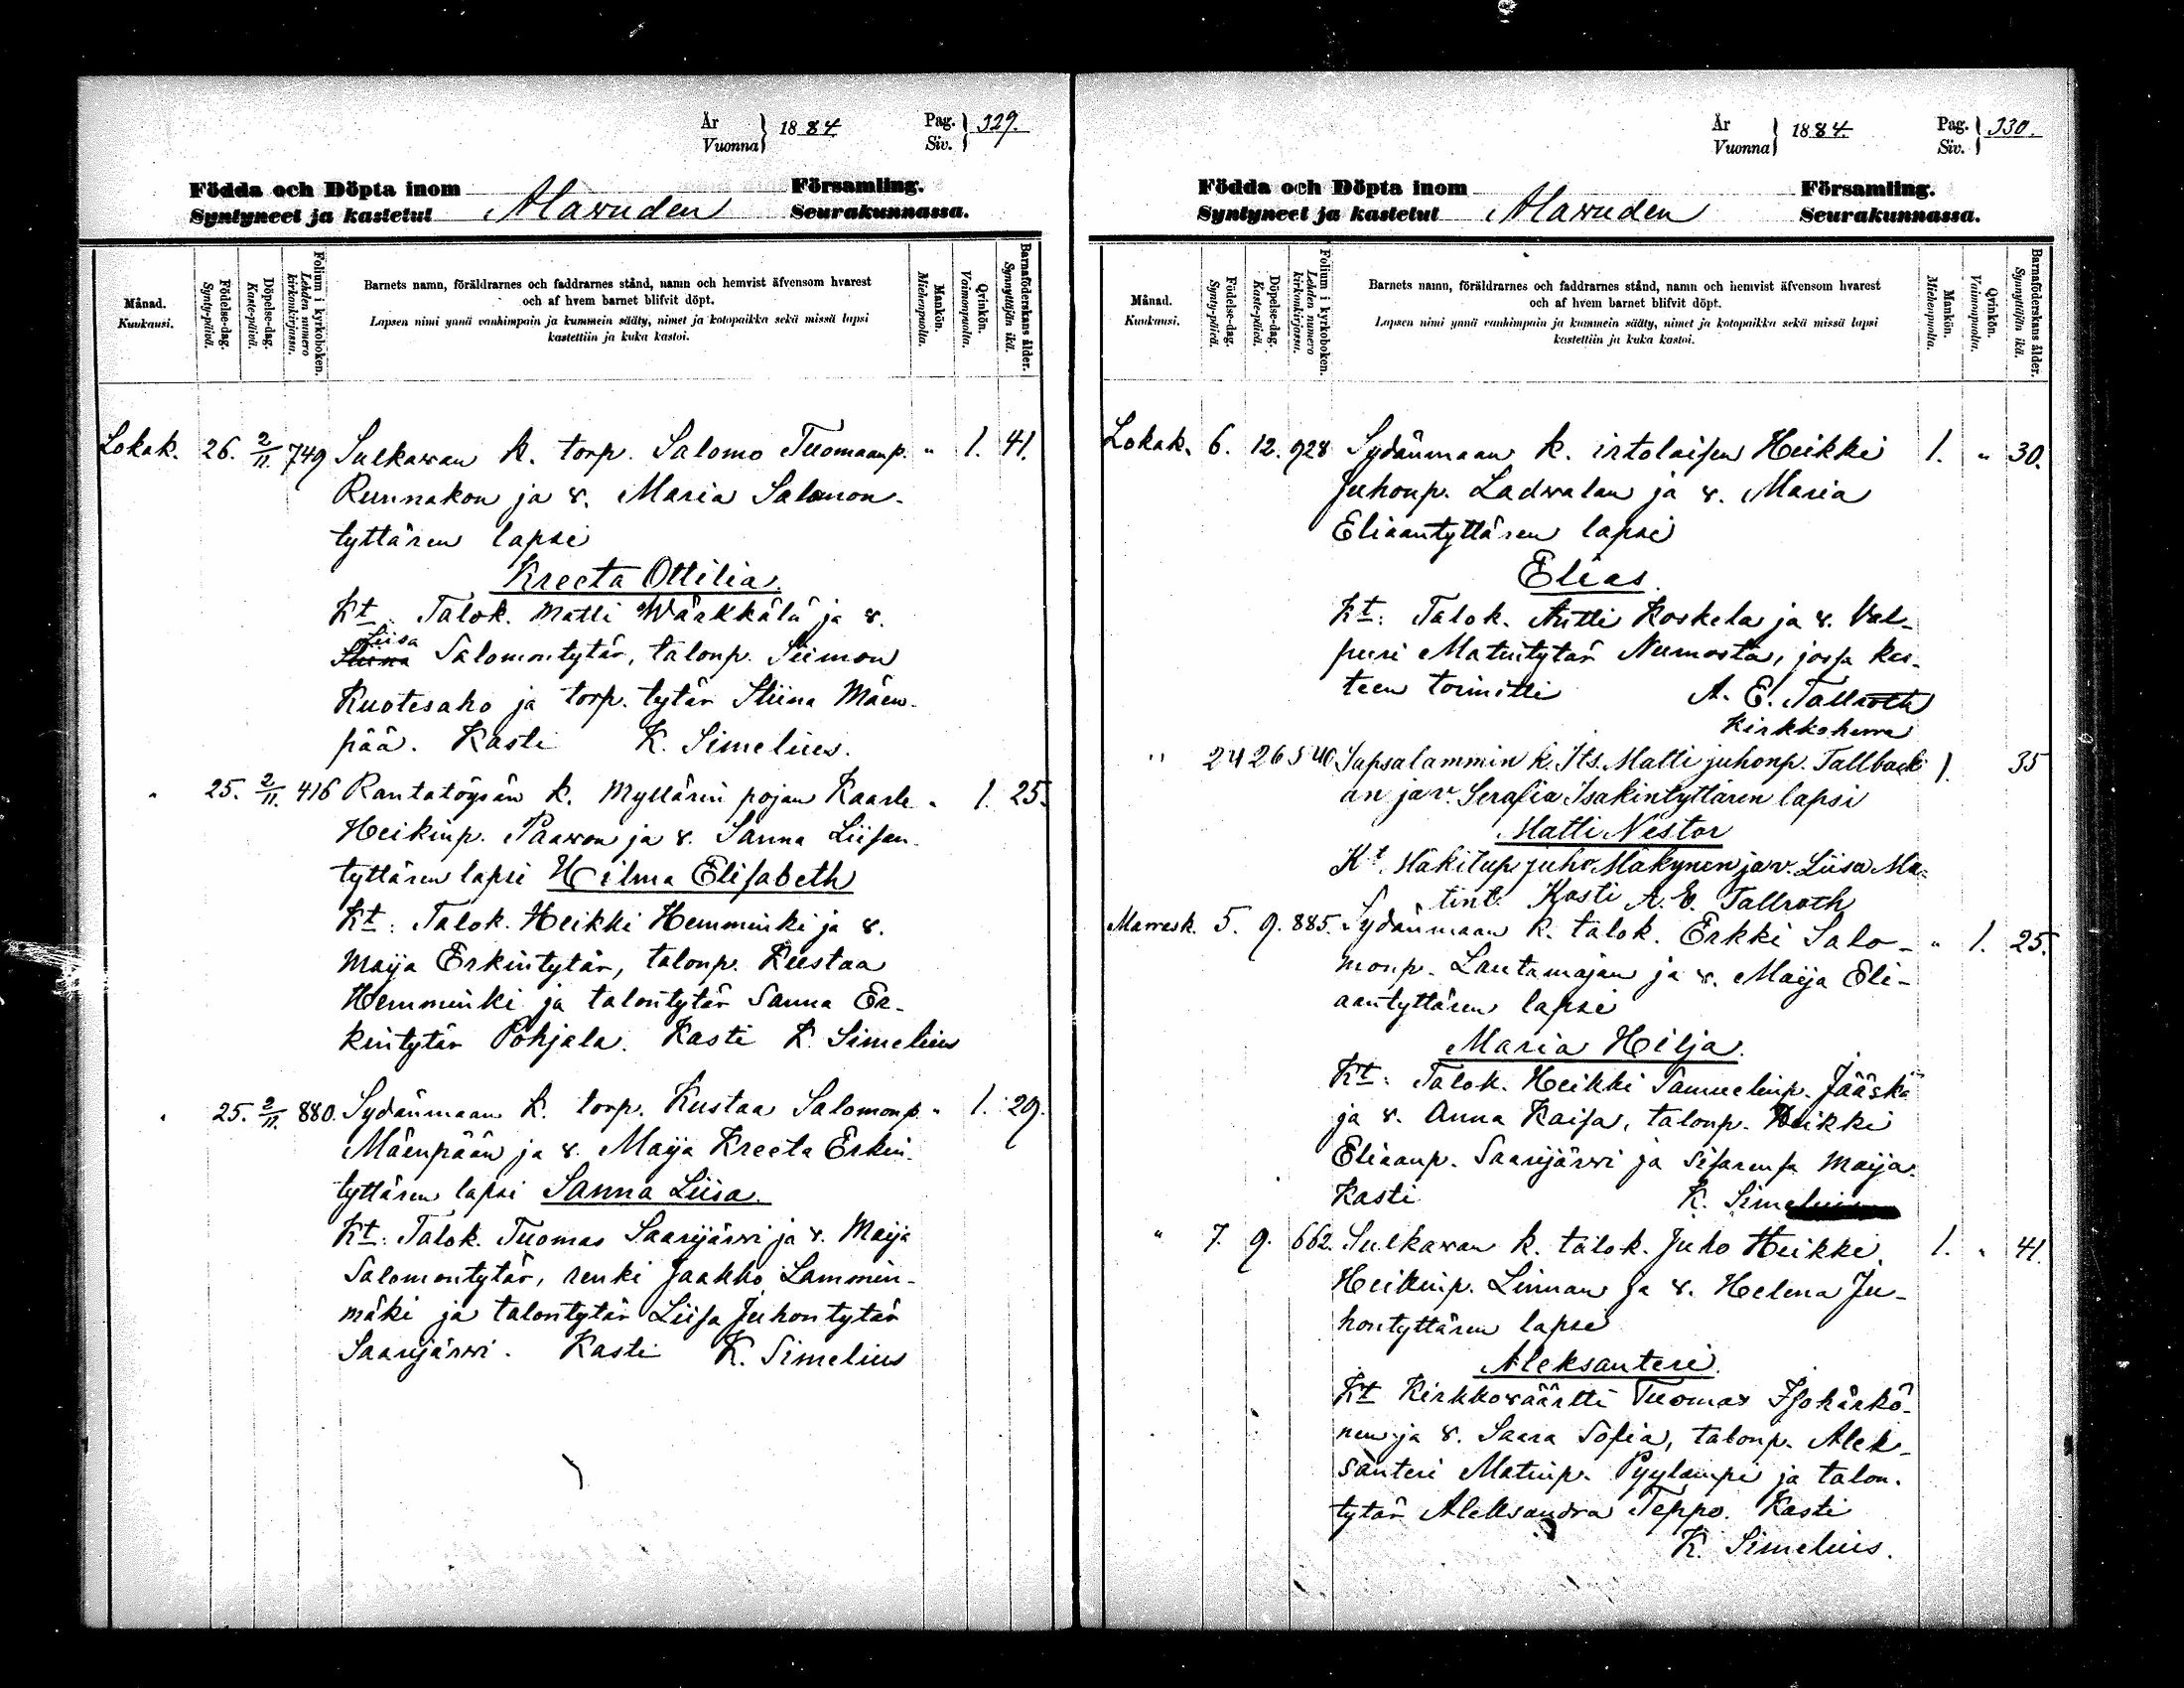 År
Vuonna
1884.
Pag.
Siv.
329.
Födda och Döpta inom
Syntyneet ja kastetut
Alavuden
Församling.
Seurakunnassa.
Månad.
Kuukausi.
Födelse-dag.
Synty-päivä.
Döpelse-dag.
Kaste-päivä.
Folium i kyrkoboken.
Lehden numero kirkonkirjassa.
Barnets namn, föräldrarnes och faddrarnes stånd, namn och hemvist äfvensom hvarest
och af hvem barnet blifvit döpt.
Lapsen nimi ynnä vanhimpain ja kummein sääty, nimet ja kotopaikka sekä missä lapsi
kastettiin ja kuka kastoi.
Mankön.
Miehenpuolia.
Qvinkön.
Vaimonpuolia.
Barnaföderskans ålder.
Synnyttäjän ikä.
Lokak. 26. 2/11. 749 Sulkawan k. torp. Salomo Tuomaanp. " 1. 41.
Runnakon ja v. Maria Salomon-
tyttären lapsi
Kreeta Ottilia.
Kt. Talok. Matti Wärkkälä ja v.
Liisa
Stiina Salomontytär, talonp. Siimon
Kuotesaho ja torp. tytär Stiina Mäen-
pää. Kasti K. Simelius.
" 25. 2/11. 416 Rantatöysän k. Myllärin pojan Kaarle " 1. 25.
Heikinp. Paawon ja v. Sanna Liisan-
tyttären lapsi Hilma Elisabeth
Kt: Talok. Heikki Hemminki ja v.
Maija Erkintytär, talonp. Kustaa
Hemminki ja talontytär Sanna Er-
kintytär Pohjala. Kasti K. Simelius
" 25. 2/11. 880. Sydänmaan k. torp. Kustaa Salomonp. " 1. 29.
Mäenpään ja v. Maija Kreeta Erkin-
tyttären lapsi Sanna Liisa.
Kt: Talok. Tuomas Saarijärwi ja v. Maija
Salomontytär, renki Jaakko Lammin-
mäki ja talontytär Liisa Juhontytär
Saarijärwi. Kasti K. Simelius
År
Vuonna
1884.
Pag.
Siv.
330.
Födda och Döpta inom
Syntyneet ja kastetut
Alavuden
Församling.
Seurakunnassa.
Månad.
Kuukausi.
Födelse-dag.
Synty-päivä.
Döpelse-dag.
Kaste-päivä.
Folium i kyrkoboken.
Lehden numero kirkonkirjassa.
Barnets namn, föräldrarnes och faddrarnes stånd, namn och hemvist äfvensom hvarest
och af hvem barnet blifvit döpt.
Lapsen nimi ynnä vanhimpain ja kummein sääty, nimet ja kotopaikka sekä missä lapsi
kastettiin ja kuka kastoi.
Mankön.
Miehenpuolia.
Qvinkön.
Vaimonpuolia.
Barnaföderskans ålder.
Synnyttäjän ikä.
Lokak. 6. 12. 928 Sydänmaan k. irtolaisen Heikki 1. " 30.
Juhonp. Ladwalan ja v. Maria
Eliaantyttären lapsi
Elias.
Kt: Talok. Antti Koskela ja v. Val-
puri Matintytär Nurmosta, jossa kas-
teen toimitti A. E. Tallroth
Kirkkoherra
" 24 26 540 Sapsalammin k. Its. Matti juhonp. Tallback- 1. 35
an ja v. Serafia Isakintyttären lapsi
Matti Nestor
Kt. Mäkitup juho Mäkynen ja v. Liisa Ma-
tint. Kasti A. E. Tallroth
Marrask. 5. 9. 885. Sydänmaan k. talok. Erkki Salo- " 1. 25.
monp. Lautamajan ja v. Maija Eli-
aantyttären lapsi
Maria Hilja.
Kt: Talok. Heikki Samuelinp. Jääskä
ja v. Anna Kaisa, talonp. Heikki
Eliaanp. Saarijärwi ja sisarensa Maija.
Kasti K. Simelius
" 7. 9. 662. Sulkawan k. talok. Juho Heikki 1. " 41.
Heikinp. Linnan ja v. Helena Ju-
hontyttären lapse
Aleksanteri.
Kt Kirkkowäärtti Tuomas Isohärkö-
nen ja v. Saara Sofia, talonp. Alek-
santeri Matinp. Pyylampi ja talon-
tytär Aleksandra Teppo. Kasti
K. Simelius.